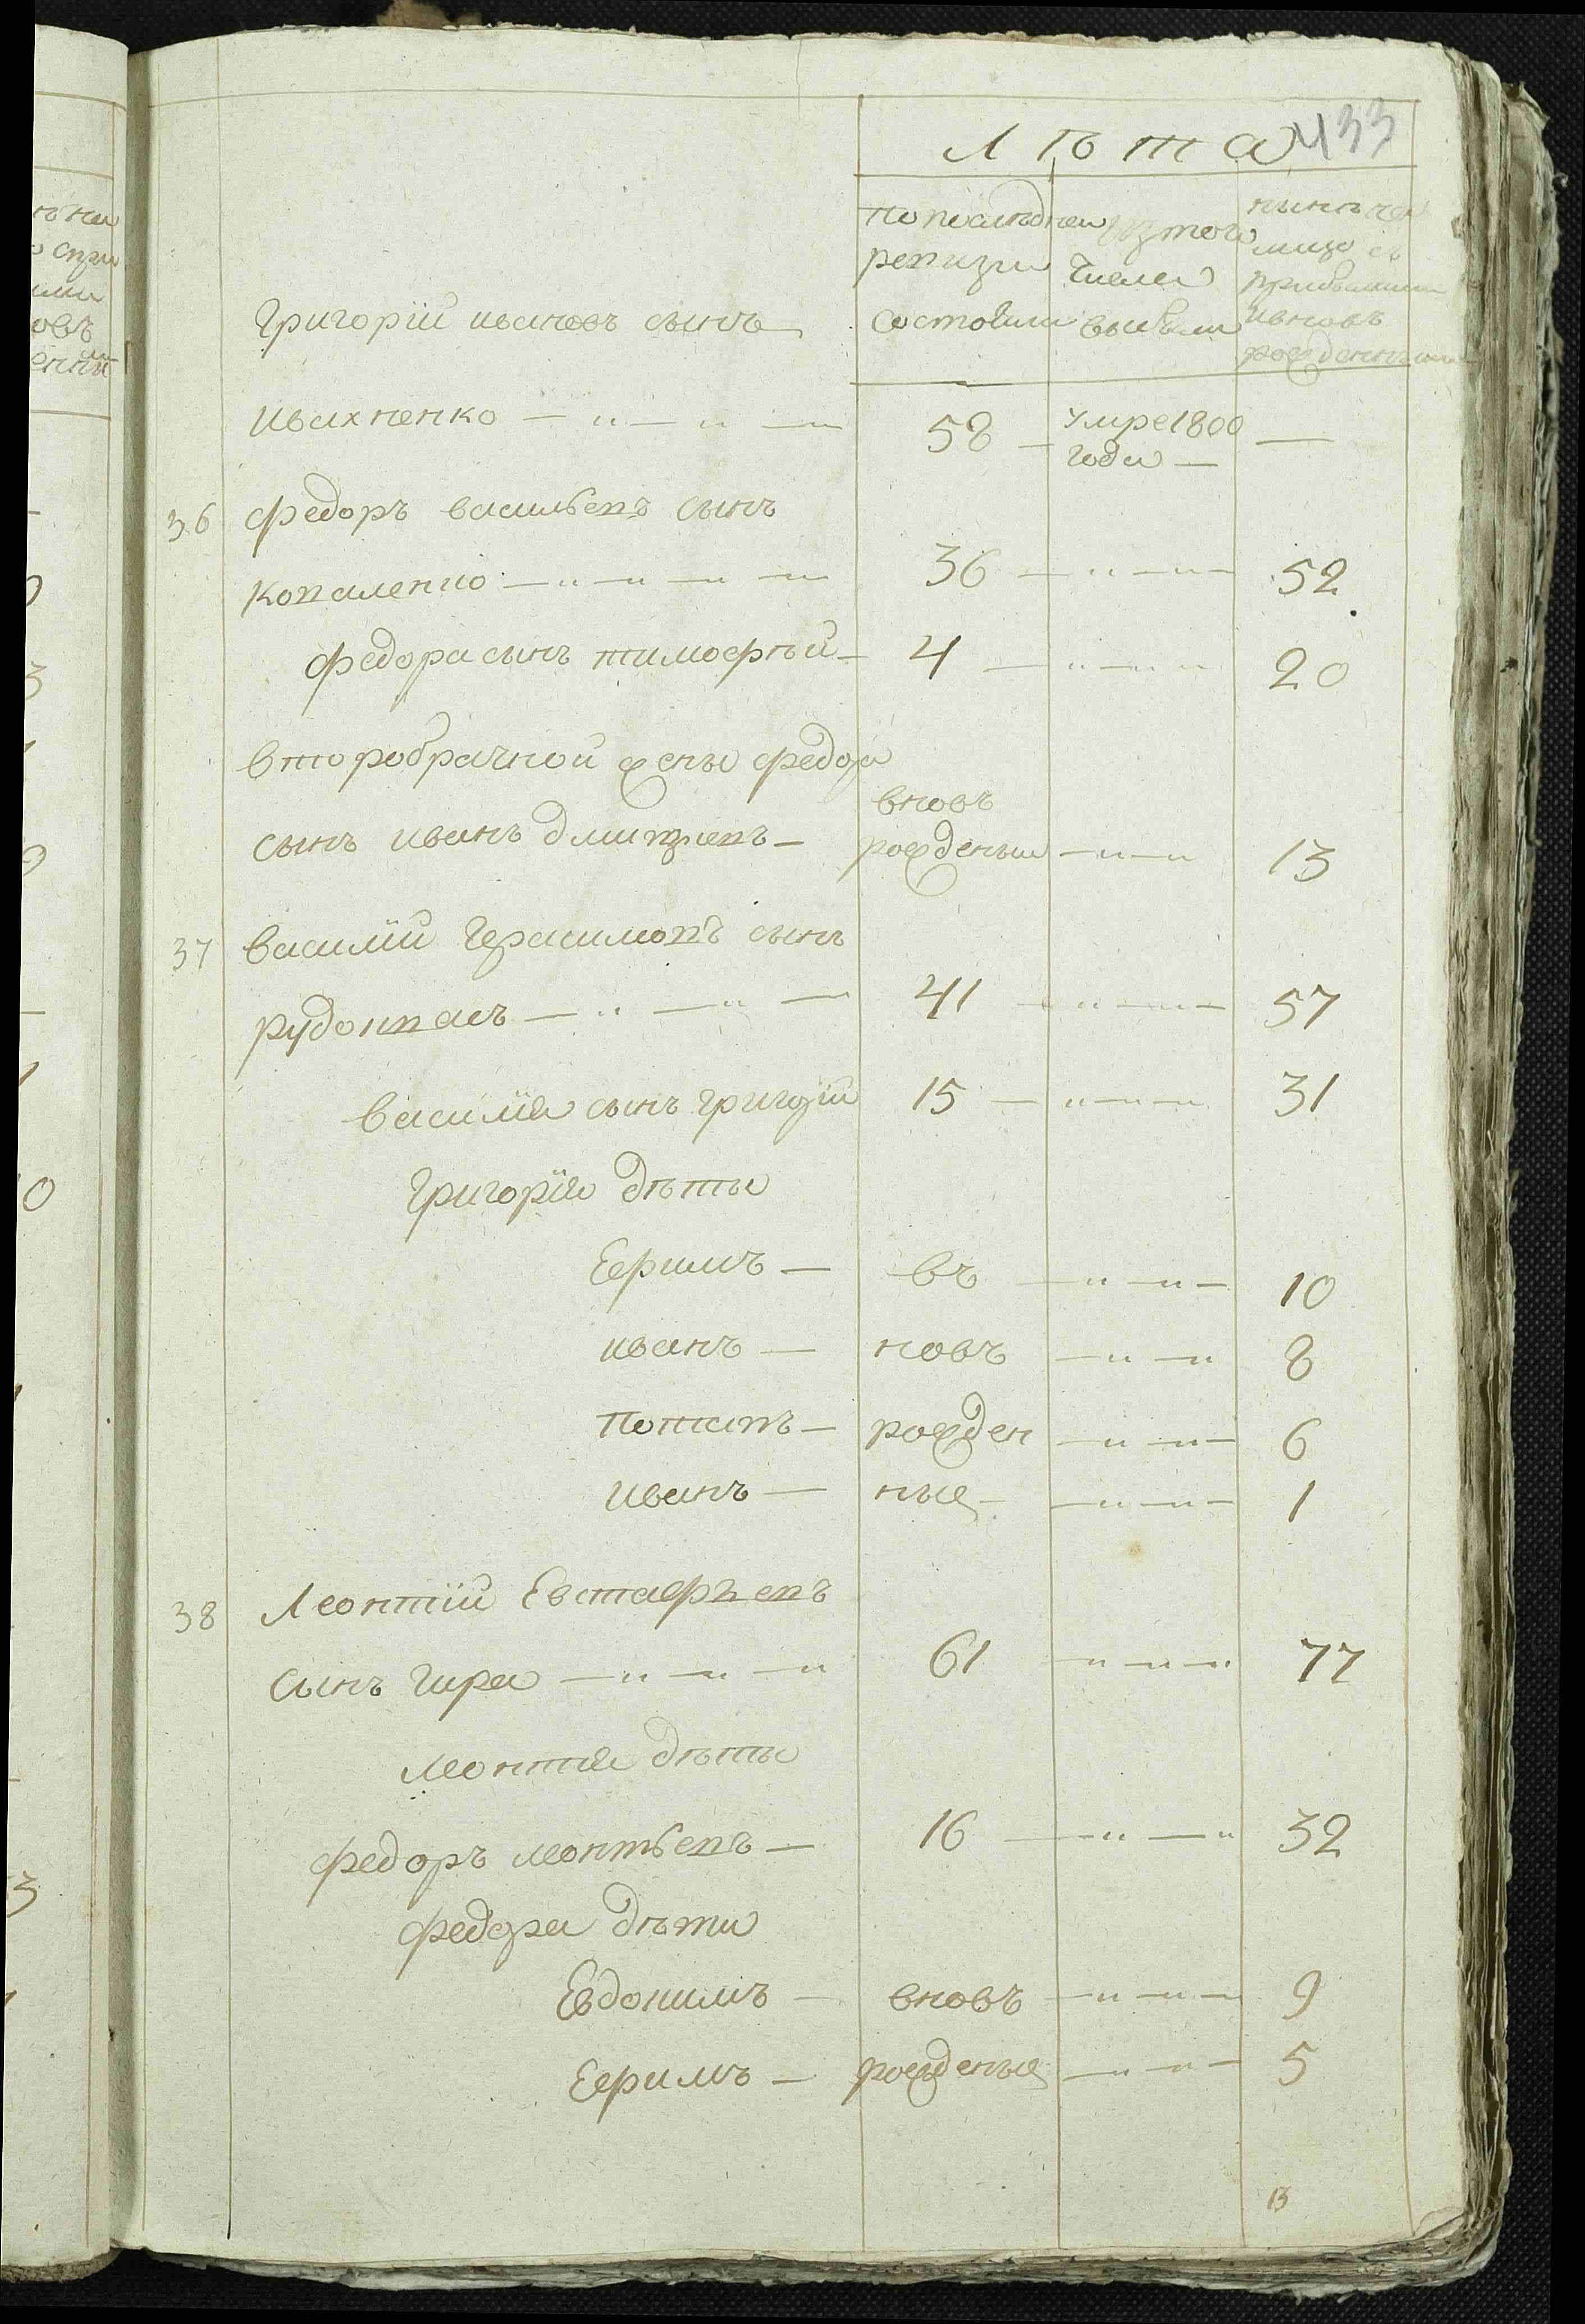 433
Лѣта
по последнеи ревизіи состояли
изтого числа выбыли
нынѣ на лицо съ прибылыми и вновь рожденными
Григорїй ивановъ сынъ
ивахненко — " — " — 58 — умре 1800 года — —
36 Федоръ васильевъ сынъ
коваленко — " — " — " — 36 — " — " — 52
Федора сынъ тимофѣй — 4 — " — " 20
второбрачной жены федора
сынъ иванъ дмитриевъ — вновь рожденыи — " — " 13
37 василїй Герасимовъ сынъ
рудоквасъ — " — " — 41 — " — " — 57
василїя сынъ григорїй 15 — " — " — 31
Григорїя дѣти
Ефимъ — въ — " — " — 10
иванъ — новъ — " — " 8
потапъ — рожден — " — " — 6
иванъ — ные — — " — " — 1
38 Леонтїй Евстафьевъ
сынъ Гира — " — " — " 61 — " — " — " 77
леонтия дѣти
федоръ леонтьевъ — 16 — " — " 32
федора дѣти
Евдокимъ — вновъ — " — " — 9
Ефимъ — рожденые — " — " — 5